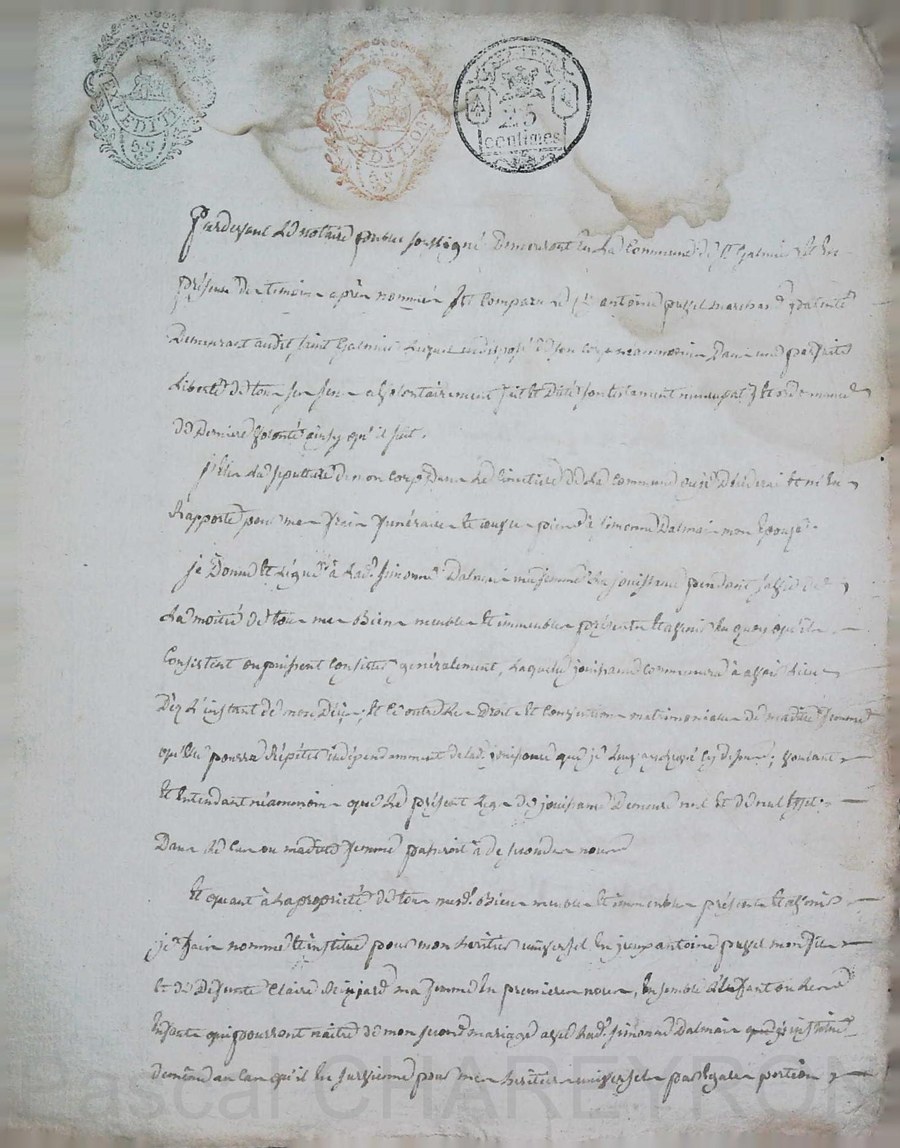 EXPEDITION
EXPEDITION
25
centimes
Pardevant le notaire public soussigné demeurant en la commune de St Galmier et en
présence des temoins après nommés est comparu le sr antoine puzel marchand patenté
Demeurant audit saint Galmier lequel indisposé de son corps neanmoins dans une parfaite
Liberté de tous ses sens a volontairement fait et dicté son testament nuncupatif et ordonnance
de derniere volonté ainsy qu'il suit.
j'élis la sepulture de mon corps dans le cimetiere de la commune ou je décéderai et m'en
Rapporte pour mes frais funéraires et aux soins de simonne Dalmais mon Epouse.
je donne et lègue à lad. simonne Dalmais ma femme la jouissance pendant sa vie de
La moitié de tous mes biens meubles et immeubles présents et avenir en quoy qu'ils
Consistent ou puissent consister généralement, laquelle jouissance commencera à avoir lieu
Dèz l'instant de mon Décès; et ce outre les droits et conventions matrimoniaux de madite femme
qu'elle pourra répéter indépendamment de lad. jouissance que je luy ay cy dessus; voulant
Et Entendant néanmoins que le présent legs de jouissance Demeure nul et de nul effet
Dans le cas ou madite femme passeroit à de secondes noces
Et quant à la propriété de tous mesd. biens meubles et immeubles présents et avenir
je fais nomme et institue pour mon heritier universel jeux antoine puzel mon fils
et de Defunte Claire ma femme en premieres noces, Ensemble l'Enfant ou les
Enfants qui pourront naitre de mon second mariage avec lad. simonne Dalmais que j'institue
de même au cas qu'il en survienne pour mes heritiers universels par Egale portion
Pascal CHAREYRON